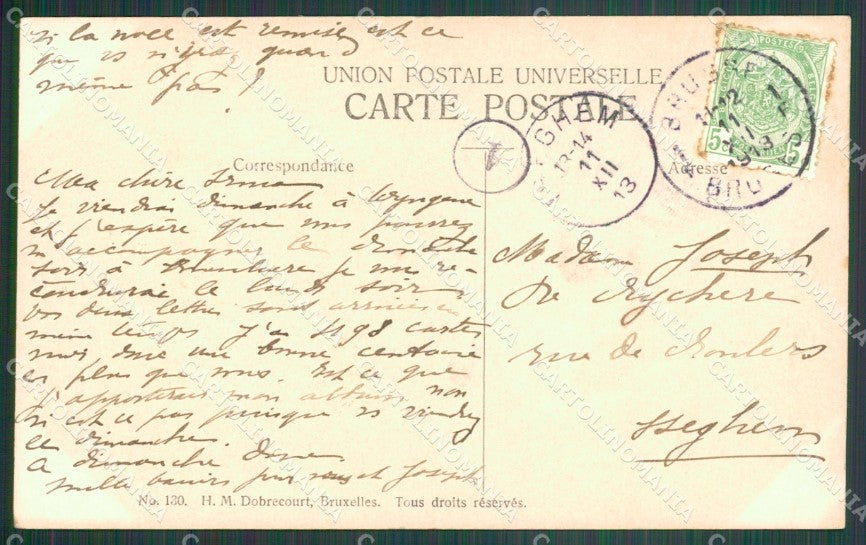 si la noce est remise, est ce
que vs n'irez quand
même pas?
UNION POSTALE UNIVERSELLE
CARTE POSTALE
Correspondance
Adresse
Ma chère Irma
Je viendrai dimanche à
et j'espère que vous pourrez
m'accompagner le dimanche
soir à je vous re-
conduirai le lundi soir
vos deux lettres sont arrivées en
même temps j'ai 1198 cartes
donc une bonne centaine
en plus que vous. Est ce que
j'apporterai mon album non
n'est ce pas puisque vs viendrez
le dimanche.
A dimanche donc
mille baisers pour vous et Joseph
Madame Joseph
De Rychere
rue de Roulers
Iseghem
ISEGHEM
13-14
11
XII
13
BRUSSEL
11-12
11
XII
1913
BRU
1
POSTES
5
5
No. 130. H. M. Dobrecourt, Bruxelles. Tous droits réservés.
CARTOLINOMANIA